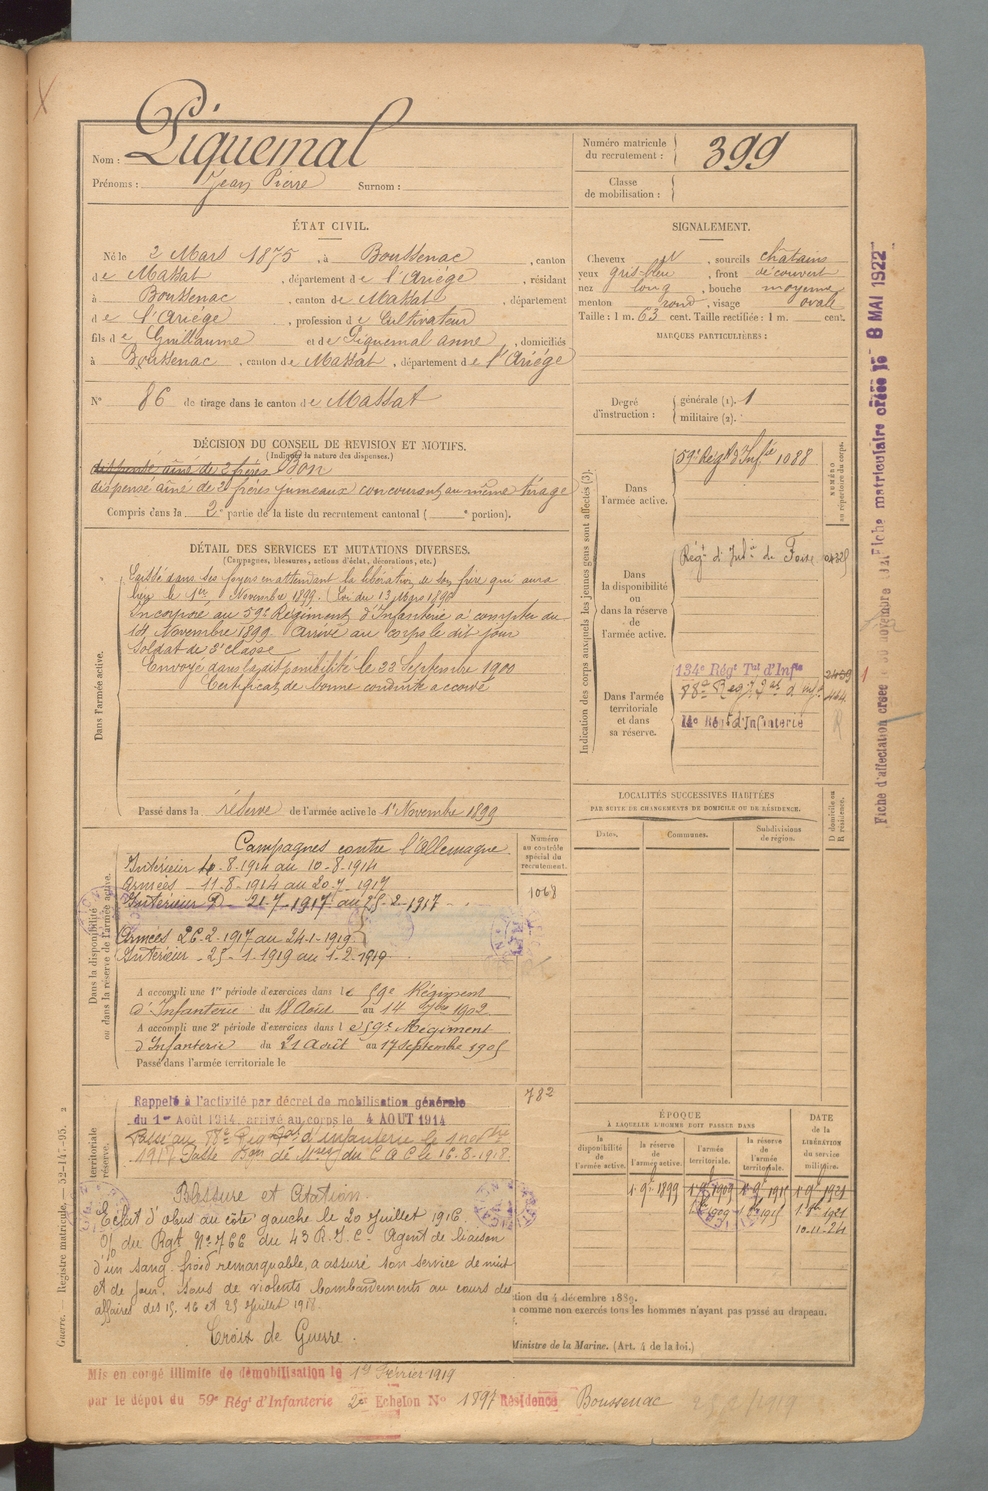 Nom : Piquemal
Prénoms : Jean Pierre Surnom :
Numéro matricule du recrutement : 399
Classe de mobilisation :
ÉTAT CIVIL.
Né le 2 Mars 1875, à Boussenac, canton
de Massat, département de l'Ariège, résidant
à Boussenac, canton de Massat, département
de l'Ariège, profession de Cultivateur
fils de Guillaume et de Piquemal anne, domiciliés
à Boussenac, canton de Massat, département de l'Ariège
N° 86 de tirage dans le canton de Massat
SIGNALEMENT.
Cheveux, sourcils châtains
yeux gris-bleu, front découvert
nez long, bouche moyenne
menton rond, visage ovale
Taille : 1 m. 63 cent. Taille rectifiée : 1 m. cent.
MARQUES PARTICULIÈRES :
Degré d'instruction : générale (1). 1
militaire (2).
DÉCISION DU CONSEIL DE REVISION ET MOTIFS.
(Indiquer la nature des dispenses.)
dispensé ainé de 2 frères Bon
dispensé ainé de 2 frères jumeaux concourant au même tirage
Compris dans la 2e partie de la liste du recrutement cantonal ( e portion).
DÉTAIL DES SERVICES ET MUTATIONS DIVERSES.
(Campagnes, blessures, actions d'éclat, décorations, etc.)
Dans l'armée active.
Laissé dans ses foyers en attendant la libération de son frère qui aura
lieu le 1er Novembre 1899. (Loi du 13 Mars 1896
Incorporé au 59e Régiment d'Infanterie à compter du
14 Novembre 1899. Arrivé au corps le dit jour
Soldat de 2e classe
Envoyé dans la disponibilité le 22 Septembre 1900
Certificat de bonne conduite accordé
Passé dans la réserve de l'armée active le 1er Novembre 1899
Indication des corps auxquels les jeunes gens sont affectés (3).
NUMÉRO au répertoire du corps.
Dans l'armée active.
59e Régt d'Infie 1088
Dans la disponibilité ou dans la réserve de l'armée active.
Régt d'Infie de Foix
Dans l'armée territoriale et dans sa réserve.
134e Régt Tal d'Infie
88e Régt Tal d'Infie
14e Régt d'Infanterie
LOCALITÉS SUCCESSIVES HABITÉES
PAR SUITE DE CHANGEMENTS DE DOMICILE OU DE RÉSIDENCE.
D domicile ou R résidence.
Dates. Communes. Subdivisions de région.
Dans la disponibilité ou dans la réserve de l'armée active.
Numéro au contrôle spécial du recrutement.
1068
Campagnes contre l'Allemagne
Intérieur 4.8.1914 au 10-8-1914
Armées - 11-8-1914 au 20-7-1917
Intérieur D - 21-7-1917 au 25-2-1917
Armées 26-2-1917 au 24-1-1919
Intérieur - 25-1-1919 au 1-2-1919
A accompli une 1re période d'exercices dans le 59e Régiment
d'Infanterie du 18 Août au 14 7bre 1902
A accompli une 2e période d'exercices dans le 59e Régiment
d'Infanterie du 21 Août au 17 Septembre 1905
Passé dans l'armée territoriale le
782
territoriale réserve.
Rappelé à l'activité par décret de mobilisation générale
du 1er Août 1914, arrivé au corps le 4 AOUT 1914
Passé au 88e Régt tal d'infanterie le 1 nov
191 Passé du C A C le 16-8-1918
Blessure et Citation.
Eclat d'obus au côté gauche le 20 Juillet 1916
O/ du Rgt N° 766 du 43 R.I.C. Agent de liaison
d'un sang froid remarquable, a assuré son service de nuit
et de jour, sous de violents bombardements au cours des
affaires des 15. 16 et 25 juillet 1918.
Croix de Guerre.
ÉPOQUE
À LAQUELLE L'HOMME DOIT PASSER DANS
la disponibilité de l'armée active.
la réserve de l'armée active.
l'armée territoriale.
la réserve de l'armée territoriale.
DATE de la LIBÉRATION du service militaire.
1er 9bre 1899 1er 9bre 1909 1er 9bre 1915 1er 9bre 1921
10-11-24
tion du 4 décembre 1889.
comme non exercés tous les hommes n'ayant pas passé au drapeau.
Ministre de la Marine. (Art. 4 de la loi.)
Mis en congé illimité de démobilisation le 1er Février 1919
par le dépôt du 59e Régt d'Infanterie 2e Echelon N° 1897 Résidence Boussenac
Guerre. — Registre matricule. — 52-147-95. 2
Fiche matriculaire créée le 8 MAI 1922
Fiche d'affectation créée